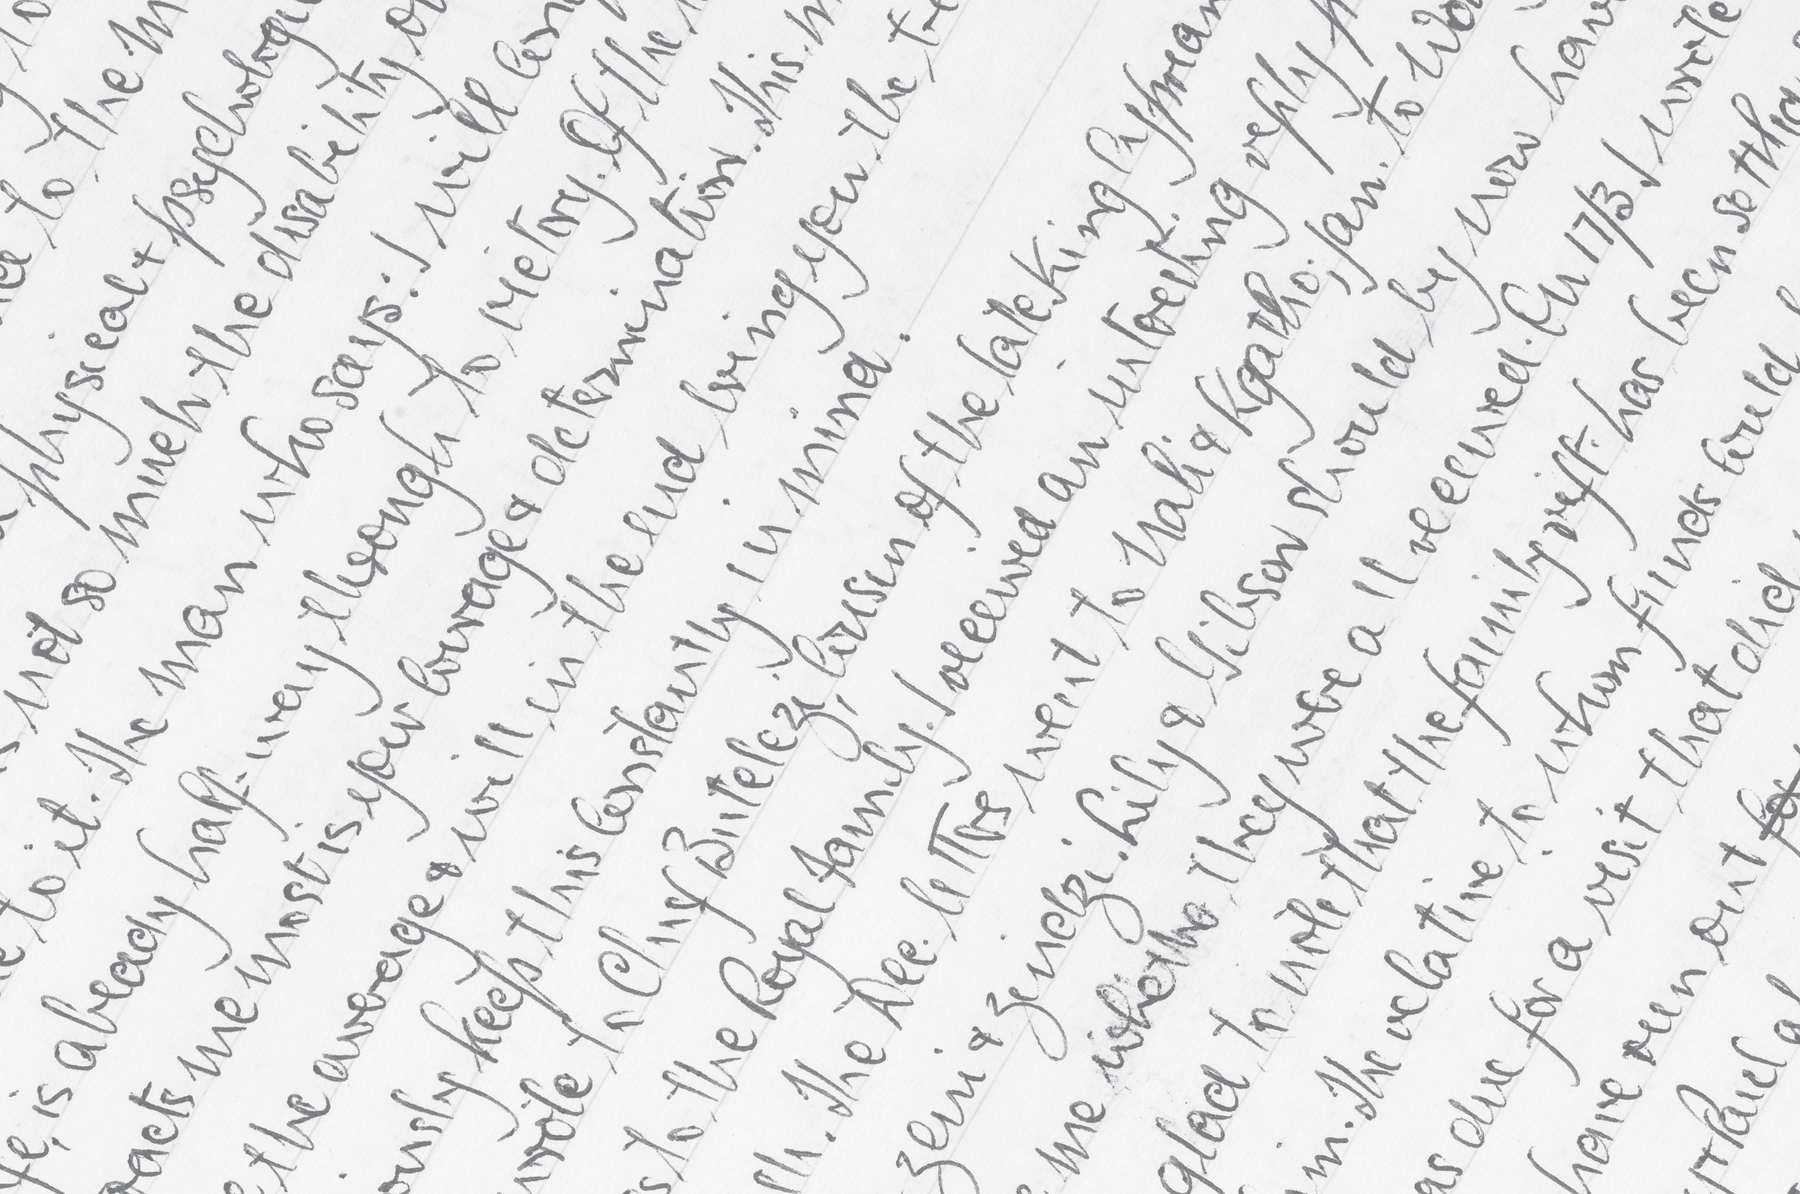 to the
physical & psycholog
is not so much the disability
to it. The man who says: I will
life, is already half-way through to victory. Of the
me most is your courage & determination. This
the average & will in the end bring you the
keep this constantly in mind.
wrote to Chief Butelezi, cousin of the late King
to the Royal Family. I received an interesting reply
The Dec. letters went to Maki & Kgatho; Jan. to
Zeni & Zindzi. Lily & Gibson should by now have
me whether they were all received. On 17/3 I wrote
glad to note that the family rift has been so
in. The relative to whom funds could
as due for a visit that did
have run out